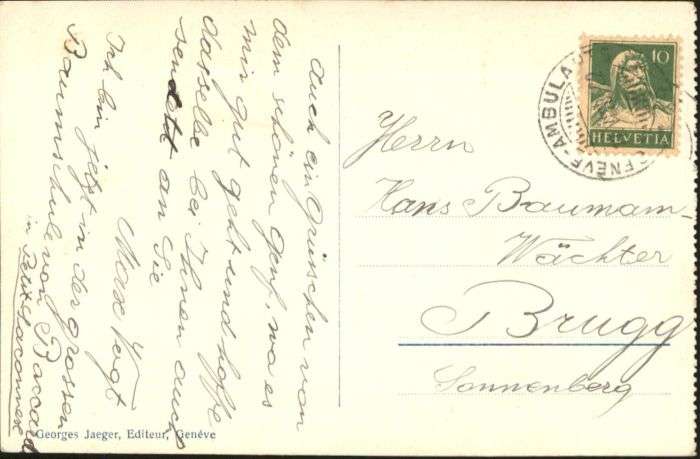 Auch ein Grüschen von
dem schönen Genf, wo es
mir gut geht und hoffe
dasselbe bei Ihnen auch
sendett an Sie
Max Vogt
Ich bin jetzt in der grossen
Baumschule von Baccard
in Petit Saconnex
Georges Jaeger, Editeur, Genève
10
HELVETIA
GENÈVE-AMBULANT
Herrn
Hans Baumam-
Wächter
Brugg
Sonnenberg